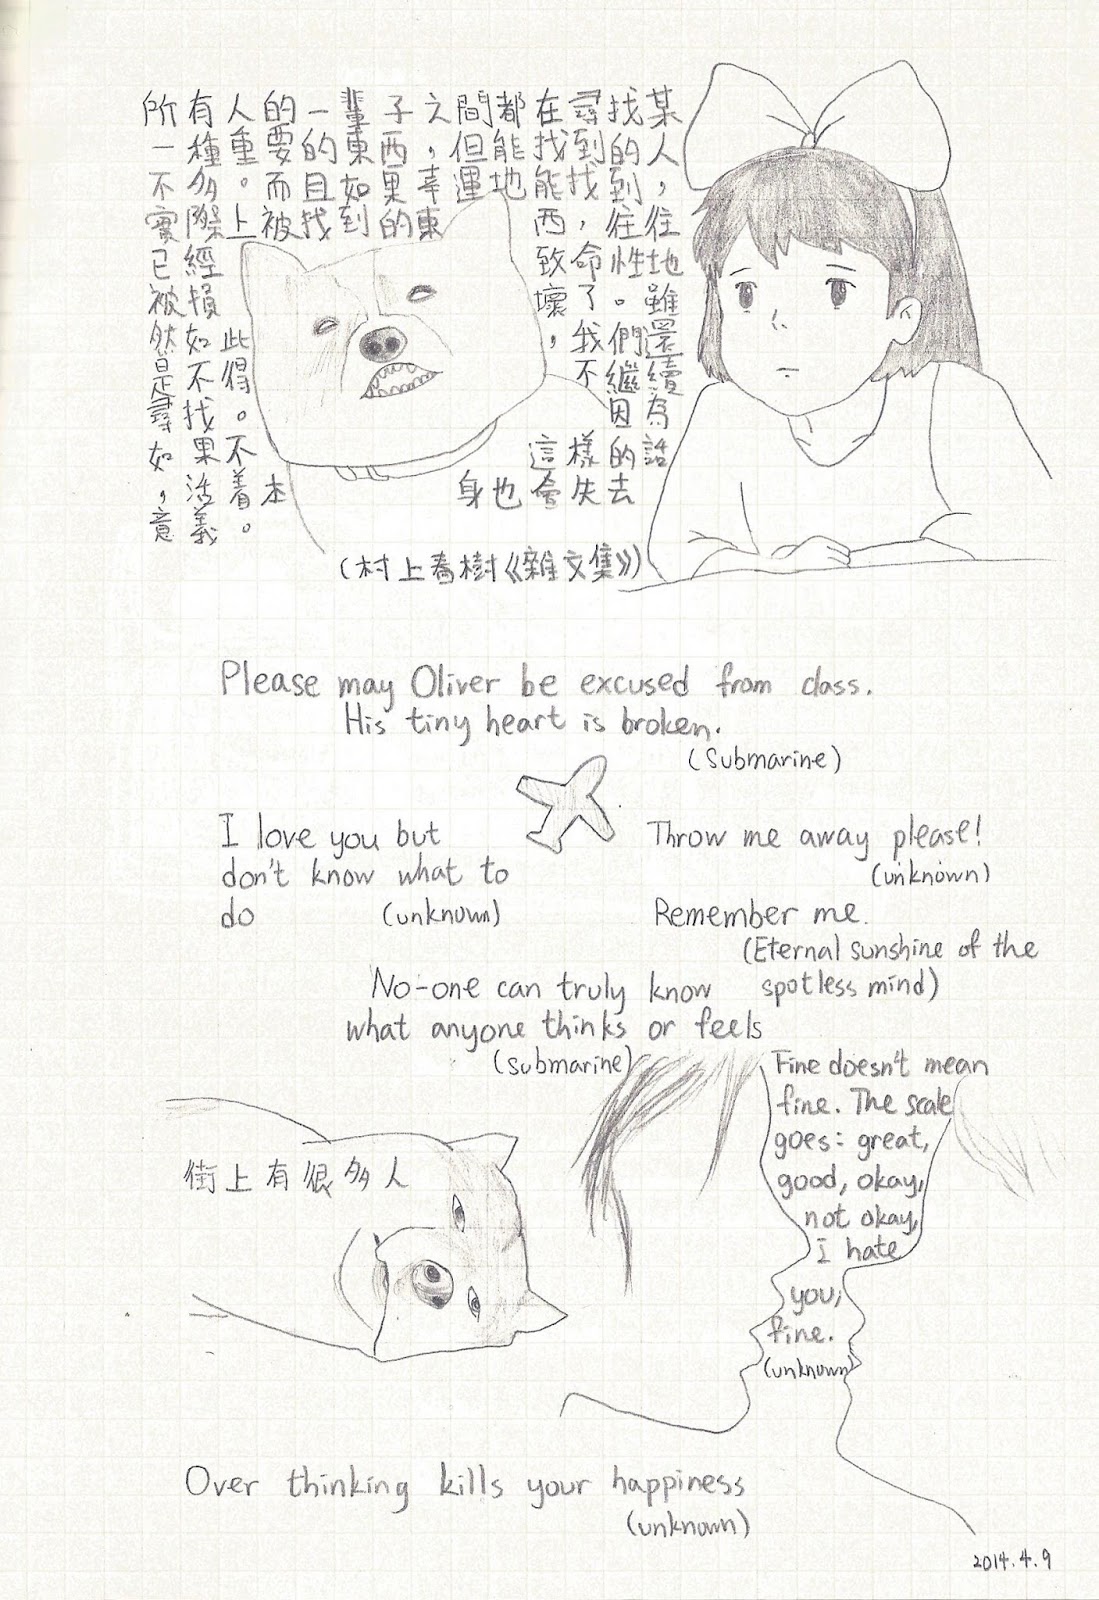 所有人的一輩子之間都在尋找某
一種重要的東西，但能找到的人，
不多。而且如果幸運地能找到，
實際上被找到的東西，往往
已經致命性地
被損壞了。雖
然如此，我們還
是不得不繼續
尋找。因為
如果不這樣的話
，活着本身也會失去
意義。
(村上春樹《雜文集》)
Please may Oliver be excused from class.
His tiny heart is broken.
(Submarine)
I love you but
don't know what to
do (unknown)
Throw me away please!
(unknown)
Remember me.
(Eternal sunshine of the
spotless mind)
No-one can truly know
what anyone thinks or feels
(submarine)
Fine doesn't mean
fine. The scale
goes: great,
good, okay,
not okay,
I hate
you,
fine.
(unknown)
街上有很多人
Over thinking kills your happiness
(unknown)
2014.4.9